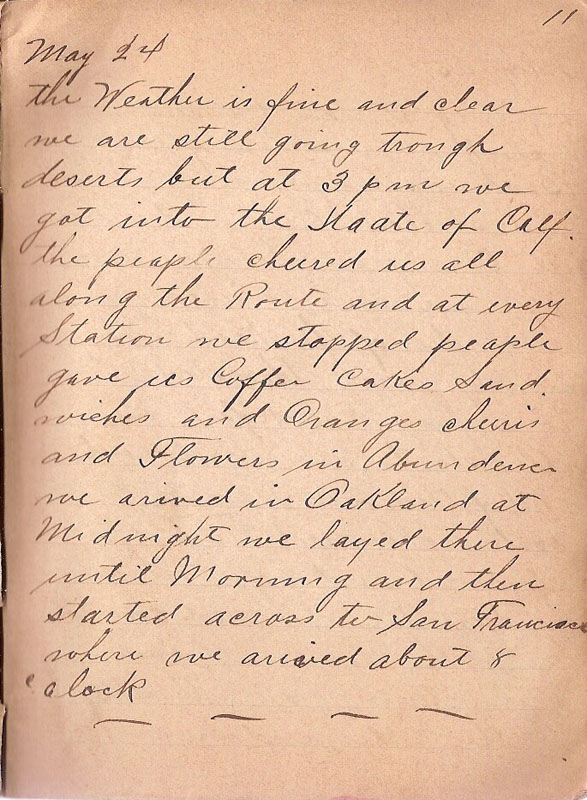 11
May 24
the Weather is fine and clear
we are still going trough
deserts but at 3 pm we
got into the Staate of Calf.
the peaple cheered us all
along the Route and at every
Station we stopped peaple
gave us Coffee Cakes Sand
wiches and Oranges cheris
and Flowers in Abundence
we arived in Oakland at
Midnight we layed there
until Morning and then
started across to San Francisco
where we arived about 8
oclock